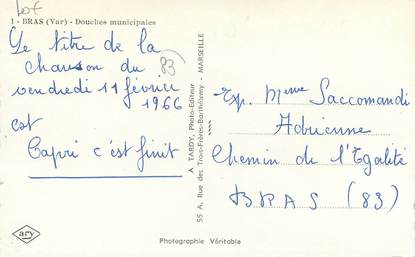 lot
1 - BRAS (Var) - Douches municipales
Le titre de la
chanson du
vendredi 11 février
1966
est
Capri c'est finit
83
A TARDY, Photo-Editeur
55 A, Rue des Trois-Frères-Barthélemy - MARSEILLE
Exp. Mme Saccomandi
Adrienne
Chemin de l'Egalité
BRAS (83)
ary
Photographie Véritable